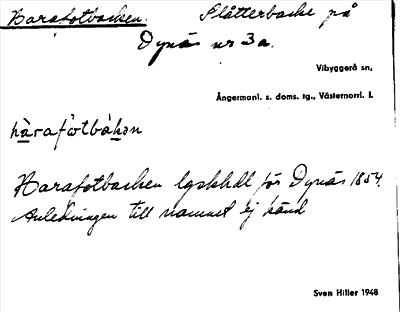 Harafotbacken. Slåtterbacke på
Dynäs nr 3a.
Vibyggerå sn,
Ångermanl. s. doms. tg., Västernorrl. l.
hàrafòtbàkən
Harafotbacken lgskhdl för Dynäs 1854.
Anledningen till namnet ej känd
Sven Hiller 1948